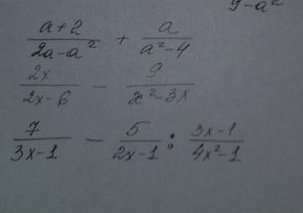 9-a²
(a+2)/(2a-a²) + a/(a²-4)
2x/(2x-6) - 9/(x²-3x)
7/(3x-1) - 5/(2x-1) : (3x-1)/(4x²-1)